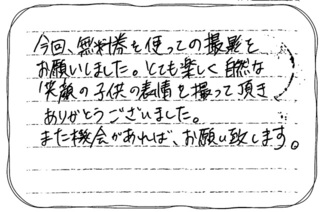 今回、無料券を使っての撮影を
お願いしました。とても楽しく自然な
笑顔の子供の表情を撮って頂き
ありがとうございました。
また機会があれば、お願い致します。